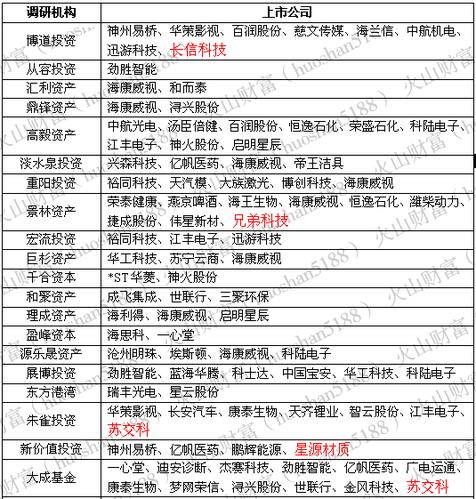 调研机构 上市公司
博道投资 神州易桥、华策影视、百润股份、慈文传媒、海兰信、中航机电、
迅游科技、长信科技
从容投资 劲胜智能
汇利资产 海康威视、和而泰
鼎锋资产 海康威视、浔兴股份
高毅资产 中航光电、汤臣倍健、百润股份、恒逸石化、荣盛石化、科陆电子、
江丰电子、神火股份、启明星辰
淡水泉投资 兴森科技、亿帆医药、海康威视、帝王洁具
重阳投资 裕同科技、天汽模、大族激光、博创科技、海康威视
景林资产 荣泰健康、燕京啤酒、海王生物、海康威视、恒逸石化、潍柴动力、
捷成股份、伟星新材、兄弟科技
宏流投资 裕同科技、江丰电子、迅游科技
巨杉资产 华工科技、苏宁云商、海康威视
千合资本 *ST华菱、神火股份
和聚资产 成飞集成、世联行、三聚环保
理成资产 海利得、海康威视、启明星辰
盈峰资本 海思科、一心堂
源乐晟资产 沧州明珠、埃斯顿、海康威视、科陆电子
展博投资 劲胜智能、蓝海华腾、科士达、中国宝安、华工科技、科陆电子
东方港湾 瑞丰光电、星云股份
朱雀投资 华策影视、长安汽车、康泰生物、天齐锂业、智云股份、江丰电子、
苏交科
新价值投资 神州易桥、亿帆医药、鹏辉能源、星源材质
大成基金 一心堂、迪安诊断、杰赛科技、劲胜智能、亿帆医药、广电运通、
康泰生物、梦网荣信、浔兴股份、世联行、金风科技、苏交科
火山财富（huoshan5188）